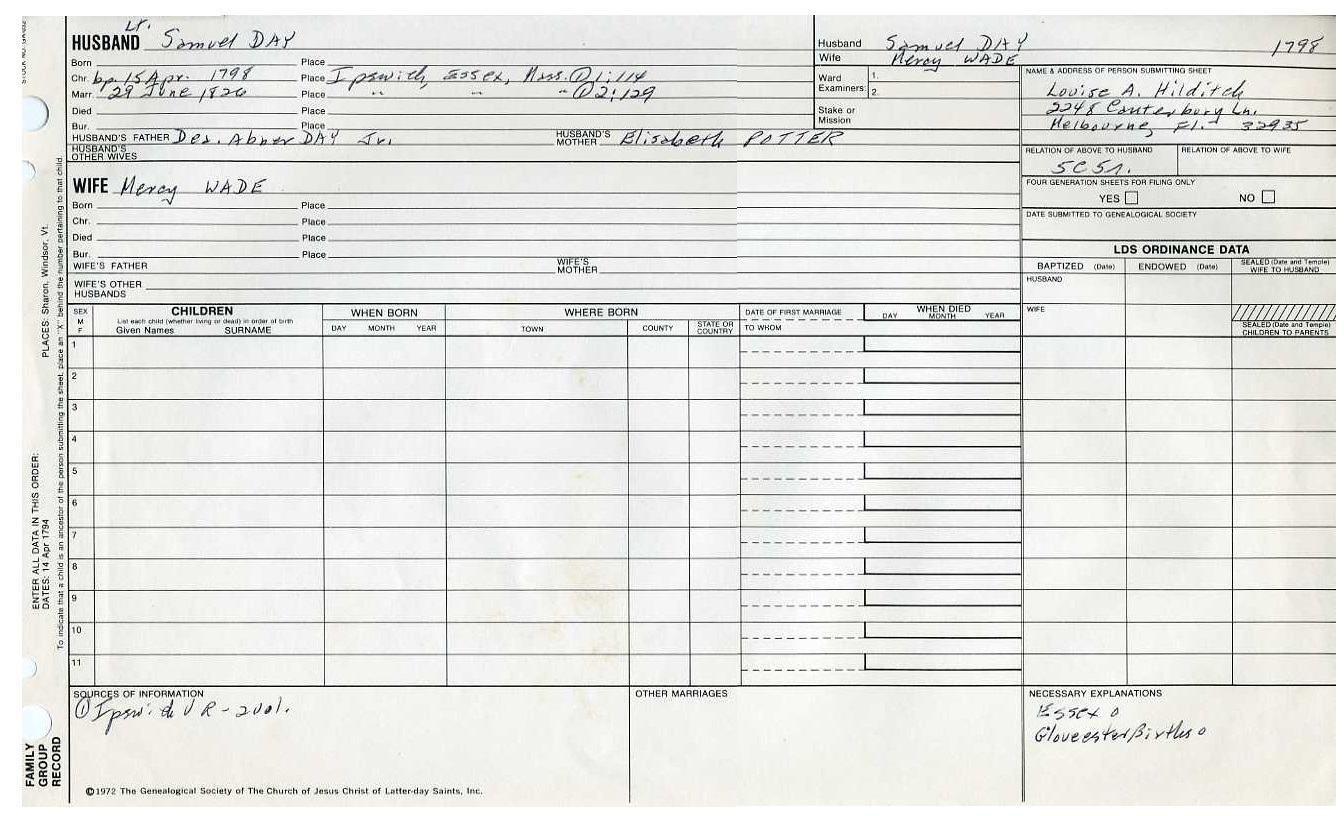 Lt.
HUSBAND Samuel DAY
Born Place
Chr. bp. 15 Apr. 1798 Place Ipswich, Essex, Mass. ① 1:114
Marr. 29 June 1826 Place " " " ① 2:129
Died Place
Bur. Place
HUSBAND'S FATHER Des. Abner DAY Jr. HUSBAND'S MOTHER Elisabeth POTTER
HUSBAND'S OTHER WIVES
Husband Samuel DAY 1798
Wife Mercy WADE
Ward Examiners: 1.
2.
Stake or Mission
NAME & ADDRESS OF PERSON SUBMITTING SHEET
Louise A. Hilditch
2248 Canterbury Ln.
Melbourne, Fl. 32935
RELATION OF ABOVE TO HUSBAND RELATION OF ABOVE TO WIFE
5C5r.
FOUR GENERATION SHEETS FOR FILING ONLY
YES NO
DATE SUBMITTED TO GENEALOGICAL SOCIETY
WIFE Mercy WADE
Born Place
Chr. Place
Died Place
Bur. Place
WIFE'S FATHER WIFE'S MOTHER
WIFE'S OTHER HUSBANDS
LDS ORDINANCE DATA
BAPTIZED (Date) ENDOWED (Date) SEALED (Date and Temple) WIFE TO HUSBAND
HUSBAND
WIFE
SEALED (Date and Temple) CHILDREN TO PARENTS
SEX M F
CHILDREN
List each child (whether living or dead) in order of birth
Given Names SURNAME
WHEN BORN
DAY MONTH YEAR
WHERE BORN
TOWN COUNTY STATE OR COUNTRY
DATE OF FIRST MARRIAGE
TO WHOM
WHEN DIED
DAY MONTH YEAR
1
2
3
4
5
6
7
8
9
10
11
SOURCES OF INFORMATION
① Ipswich VR - 2 vol.
OTHER MARRIAGES
NECESSARY EXPLANATIONS
Essex o
Gloucester Births o
©1972 The Genealogical Society of The Church of Jesus Christ of Latter-day Saints, Inc.
FAMILY GROUP RECORD
ENTER ALL DATA IN THIS ORDER:
DATES: 14 Apr 1794
PLACES: Sharon, Windsor, Vt.
To indicate that a child is an ancestor of the person submitting the sheet, place an "X" behind the number pertaining to that child.